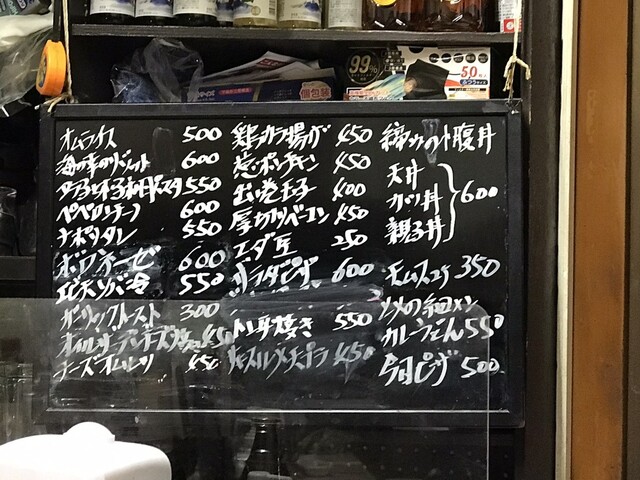 99
50
個包装
オムライス 500
海の幸のリゾット 600
タラコと木の子の和風パスタ 550
ペペロンチーノ 600
ナポリタン 550
ボロネーゼ 600
エビ天ソバ 550
ガーリックトースト 300
オイルサーデンチーズ焼 450
チーズオムレツ 450
鶏カラ揚げ 450
ポンチキン 450
出し巻玉子 400
厚切りベーコン 450
エダ豆 250
サラダピザ 600
焼き 550
天プラ 450
締めの小腹丼
天丼
カツ丼
親子丼
600
オムスコ 350
〆の
カレーうどん 550
ピザ 500